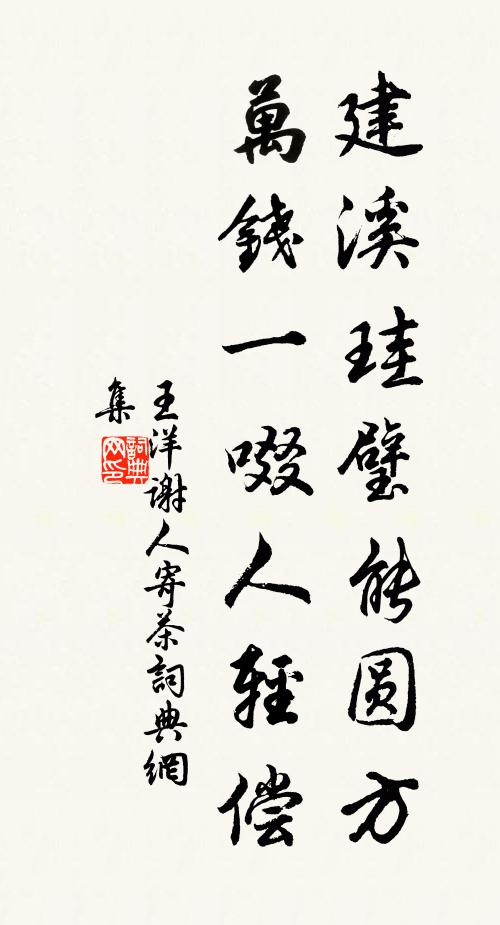 建溪珪璧能圆方
萬錢一啜人輕偿
王洋謝人寄茶詞典網
集
詞典
网印